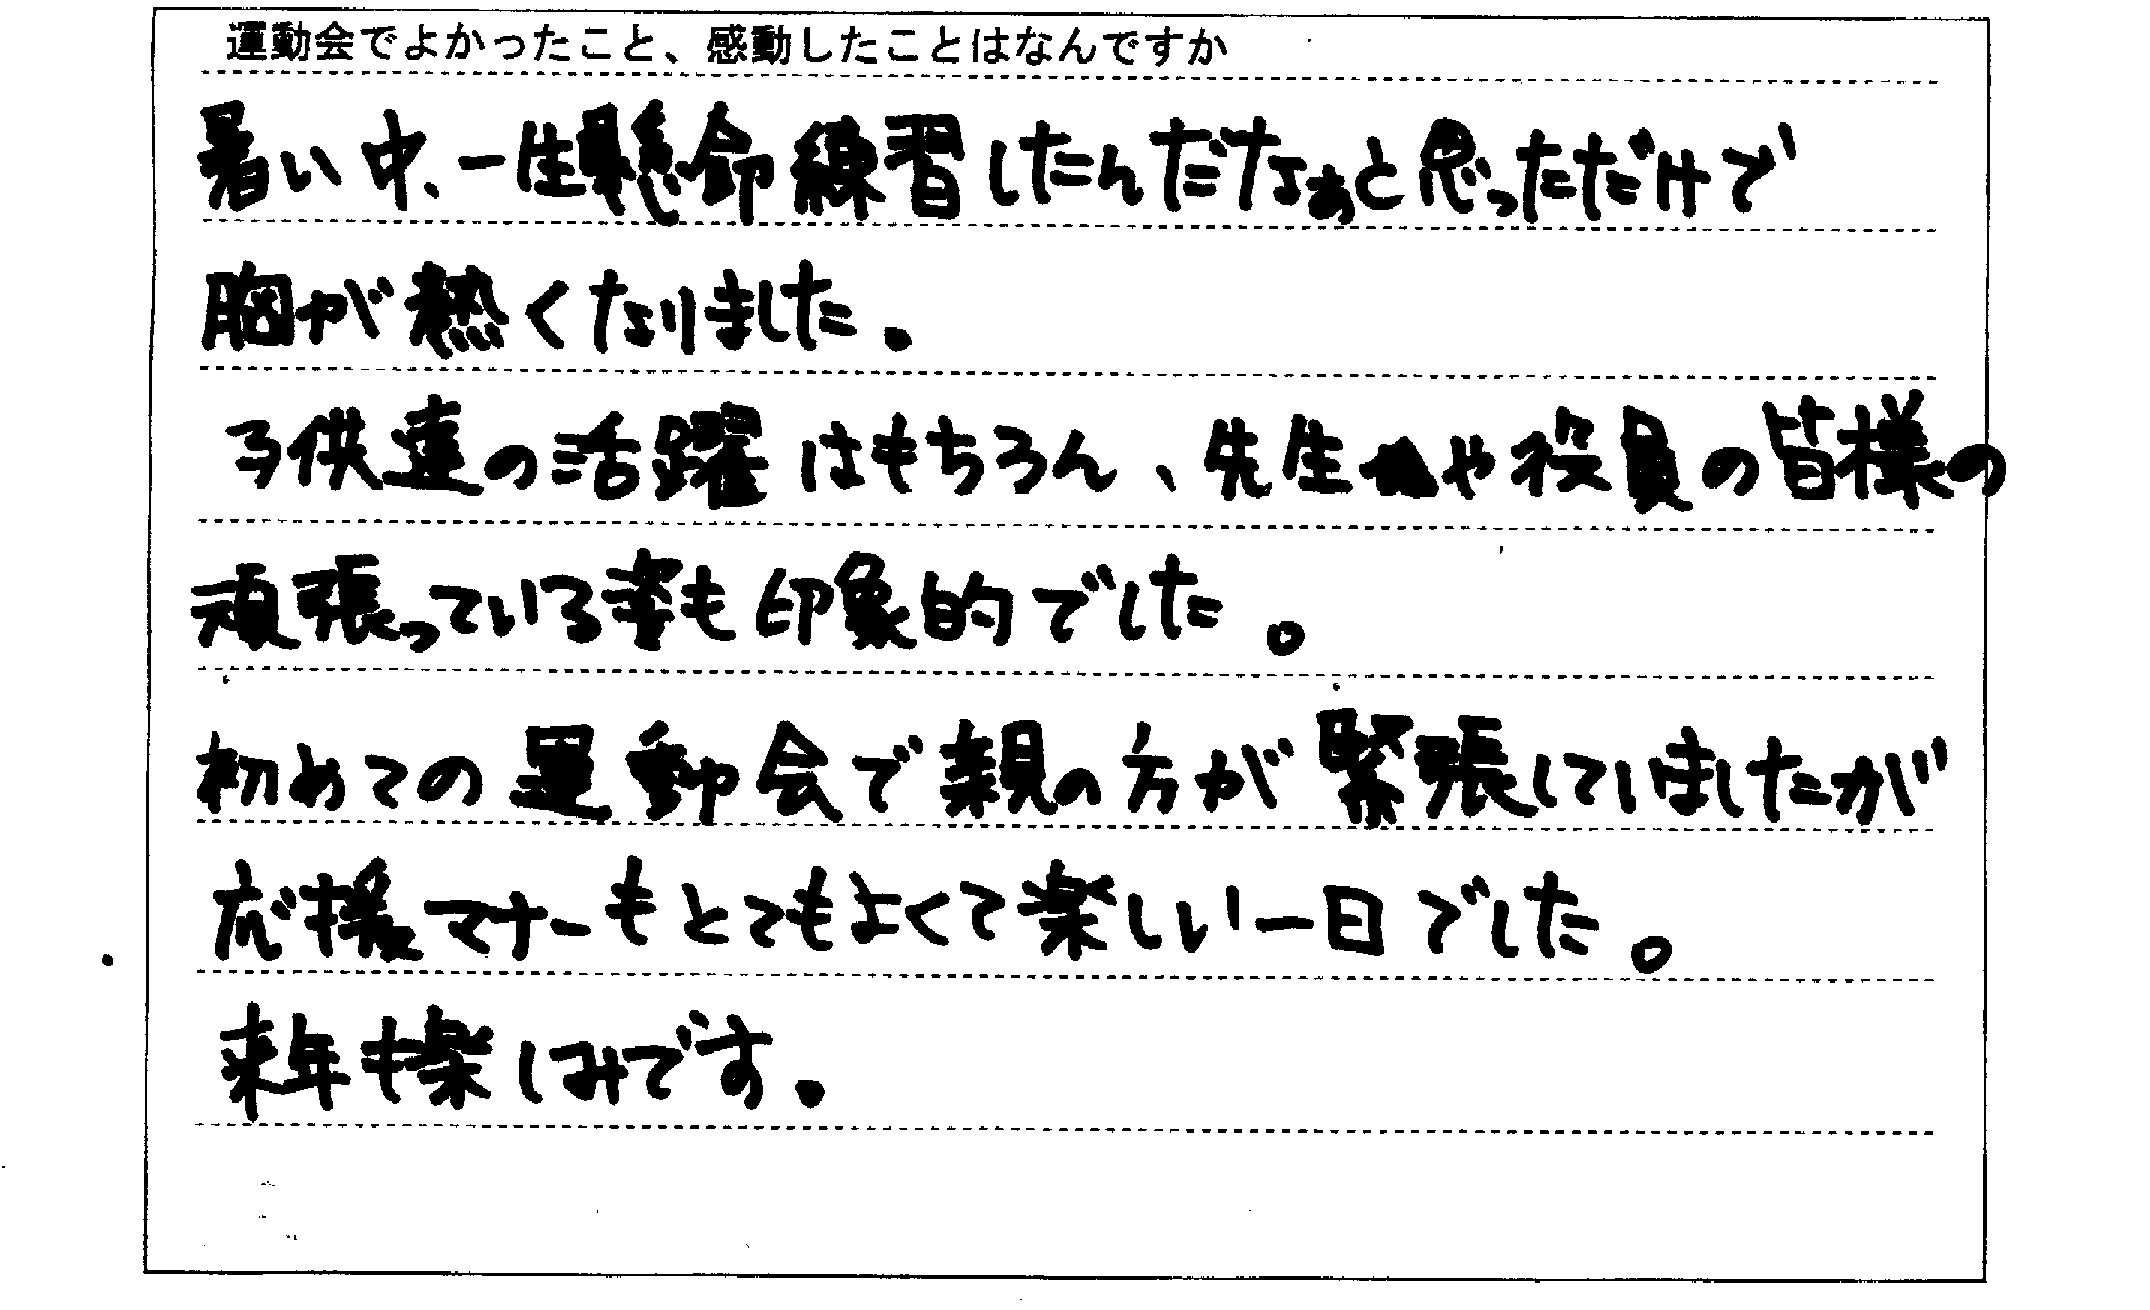 運動会でよかったこと、感動したことはなんですか
暑い中、一生懸命練習したんだなぁと思っただけで
胸が熱くなりました。
子供達の活躍はもちろん、先生や役員の皆様の
頑張っている姿も印象的でした。
初めての運動会で親の方が緊張していましたが
応援マナーもとてもよくて楽しい一日でした。
来年も楽しみです。